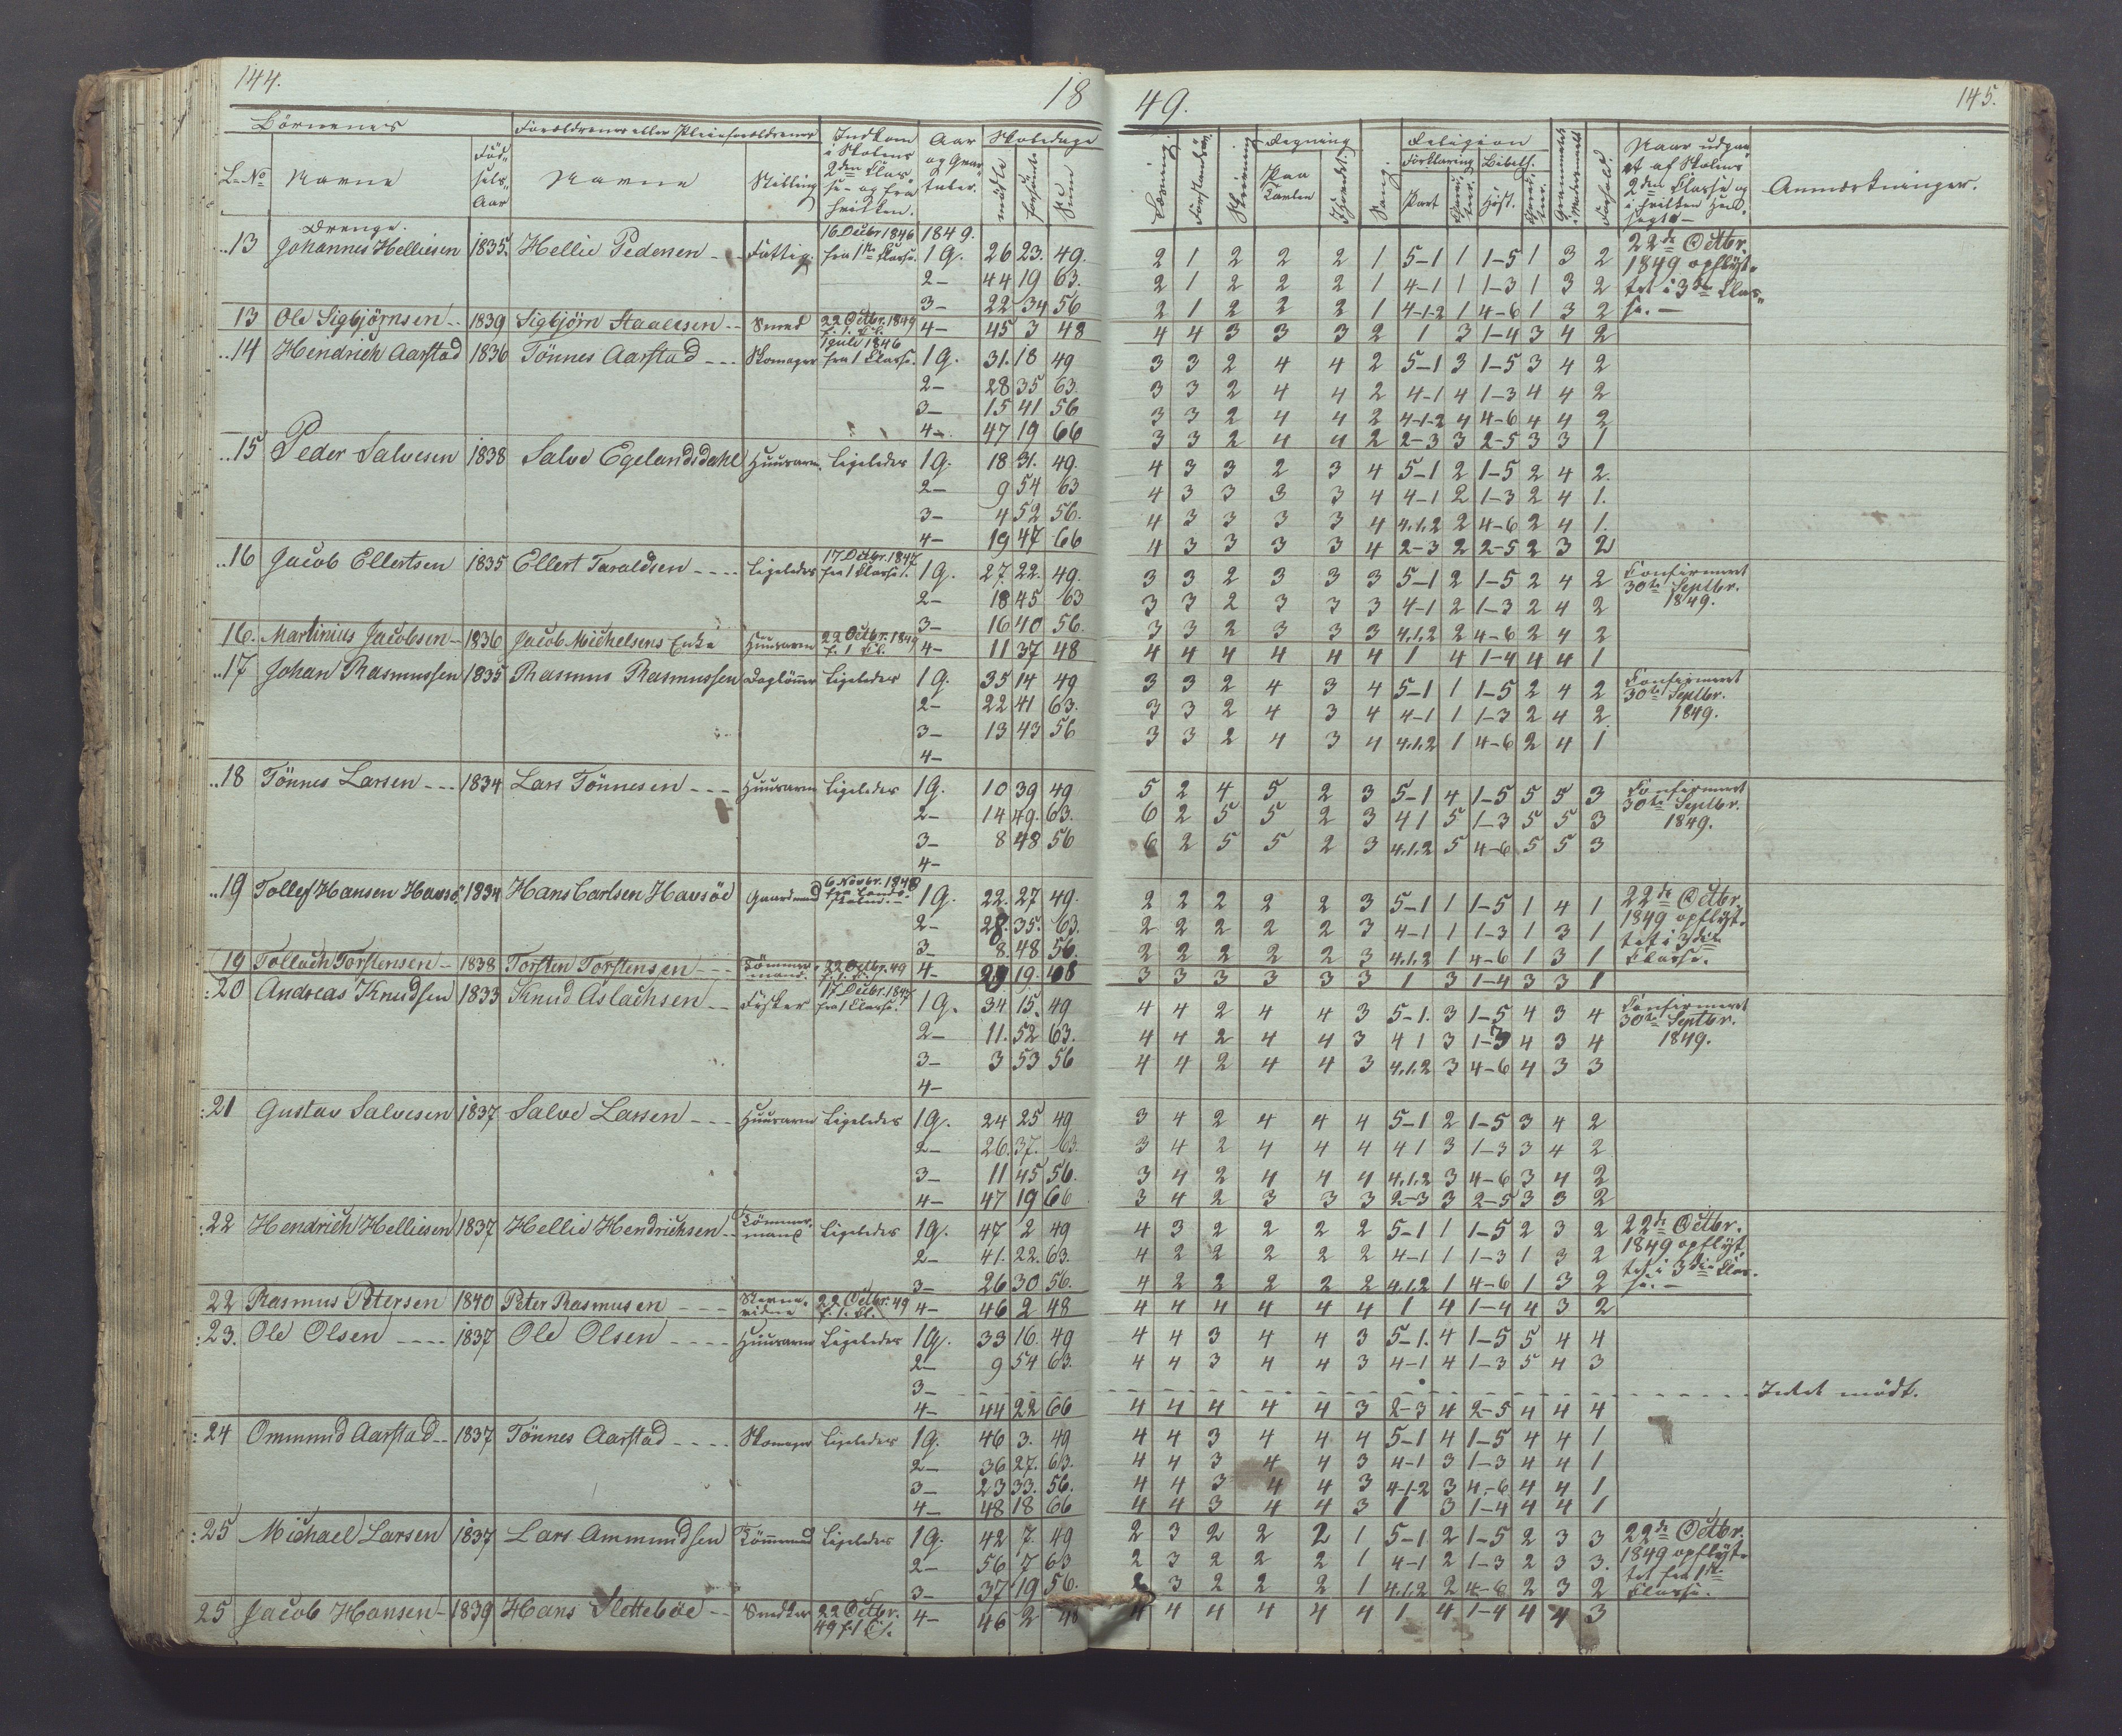 144.
18
49.
145.
Börnenes
Forældrenes eller Pleieforældrenes
Indkom i Skolens 2den Classe og fra hvilken.
Aar og Qvartaler.
Skoledage
L. No
Navne
Födsels Aar
Navne
Stilling
mödte
forsömte
Sum
Læsning.
Forstandsöv.
Skrivning
Regning
paa Tavlen
i Hovedet.
Sang.
Religion
Forklaring
Bibelh.
Part
Hist.
Forhold.
Naar udgaaet af Skolens 2den Classe og i hvilken hensegtt
Anmærkninger.
Drenge.
13 Johannes Helliesen 1835 Hellie Pedersen Fattig. 16 Decbr 1846 fra 1ste Classe. 1849. 1Q. 26 23. 49. 2 1 2 2 2 1 5-1 1 1-5 1 3 2 22de Octbr.
2- 44 19 63. 2 1 2 2 2 1 4-1 1 1-3 1 3 2 1849 opflyt-
3- 22 34 56 2 1 2 2 2 1 4-1-2 1 4-6 1 3 2 tet i 3die Clas-
13 Ole Sigbjörnsen 1839 Sigbjörn Staalesen Smed 22 Octbr. 1849 f. 1. Cl. 4- 45 3 48 4 4 3 3 3 2 1 3 1-4 3 4 2 se.
14 Hendrich Aarstad 1836 Tönnes Aarstad Skomager 1 Juli 1846 fra 1 Classe. 1Q. 31. 18 49 3 3 2 4 4 2 5-1 3 1-5 3 4 2
2- 28 35 63. 3 3 2 4 4 2 4-1 4 1-3 4 4 2
3- 15 41 56 3 3 2 4 4 2 4-1-2 4 4-6 4 4 2
4- 47 19 66 3 3 2 4 4 2 2-3 3 2-5 3 3 1
15 Peder Salvesen 1838 Salve Egelandsdahl Huusarm. Ligeledes 1Q. 18 31. 49. 4 3 3 2 3 4 5-1 2 1-5 2 4 2.
2- 9 54 63 4 3 3 3 3 4 4-1 2 1-3 2 4 1.
3- 4 52 56. 4 3 3 3 3 4 4.1.2 2 4-6 2 4 1.
4- 19 47 66 4 3 3 3 3 4 2-3 2 2-5 2 3 2
16 Jacob Ellertsen 1835 Ellert Taraldsen Ligeledes 17 Decbr. 1847 fra 1 Classe. 1Q. 27. 22. 49. 3 3 2 3 3 3 5-1 2 1-5 2 4 2 Confirmeret
2- 18 45 63 3 3 2 3 3 3 4-1 2 1-3 2 4 2 30te Septbr.
3- 16 40 56. 3 3 2 3 3 3 4.1.2 2 4-6 2 4 2 1849.
16. Martinius Jacobsen 1836 Jacob Michelsens Enke Huusarm 22 Octbr. 1849 f. 1 Cl. 4- 11 37 48 4 4 4 4 4 4 1 4 1-4 4 4 1
17 Johan Rasmussen 1835 Rasmus Rasmussen Daglönner Ligeledes 1Q. 35 14 49 3 3 2 4 3 4 5-1 1 1-5 2 4 2 Confirmeret
2- 22 41 63. 3 3 2 4 3 4 4-1 1 1-3 2 4 2 30te Septbr.
3- 13 43 56 3 3 2 4 3 4 4.1.2 1 4-6 2 4 1 1849.
4-
18 Tönnes Larsen 1834 Lars Tönnesen Huusarm Ligeledes 1Q. 10 39 49 5 2 4 5 2 3 5-1 4 1-5 5 5 3 Confirmeret
2- 14 49. 63. 6 2 5 5 2 3 4 1 5 1-3 5 5 3 30te Septbr.
3- 8 48 56 6 2 5 5 2 3 4.1.2 5 4-6 5 5 3 1849.
4-
19 Tollef Hansen Havsö 1834 Hans Carlsen Havsöe Gaardmand 6 Novbr. 1848 fra Landsskolen. 1Q. 22. 27 49. 2 2 2 2 2 3 5-1 1 1-5 1 4 1 22de Octbr.
2- 28. 35. 63. 2 2 2 2 2 3 4-1 1 1-3 1 3 1 1849 opflyt-
3- 8. 48 56. 2 2 2 2 2 3 4.1.2 1 4-6 1 3 1 tet i 3die
19 Tollach Torstensen 1838 Torsten Torstensen Tömmermand. 22 Octbr. 49 f. 1. Cl. 4- 29 19. 48 3 3 3 3 3 3 1 3 1-4 3 3 1 Classe.
20 Andreas Knudsen 1833 Knud Aslachsen Fisker 17 Decbr. 1847 fra 1 Classe. 1Q. 34 15. 49 4 4 2 4 4 3 5-1. 3 1-5 4 3 4 Confirmeret
2- 11. 52 63. 4 4 2 4 4 3 4 1 3 1-3 4 3 4 30te Septbr.
3- 3 53 56 4 4 2 4 4 3 4.1.2 3 4-6 4 3 3 1849.
4-
21 Gustav Salvesen 1837 Salve Larsen Huusarm Ligeledes 1Q. 24 25 49 3 4 2 4 4 4 5-1 2 1-5 3 4 2
2- 26. 37. 63. 3 4 2 4 4 4 4 1 3 1-3 3 4 2
3- 11 45 56. 3 4 2 4 4 4 4.1.2 3 4-6 3 4 2
4- 47 19 66 3 4 2 3 3 3 2-3 3 2-5 3 3 2
22 Hendrich Helliesen 1837 Hellie Hendrichsen Tömmermand Ligeledes 1Q. 47 2 49 4 3 2 2 2 2 5-1 1 1-5 2 3 2 22de Octbr.
2- 41. 22. 63. 4 2 2 2 2 2 4-1 1 1-3 1 3 2 1849 opflyt
3- 26 30 56. 4 2 2 2 2 2 4.1.2 1 4-6 1 3 2 tet i 3die Clas-
22 Rasmus Petersen 1840 Peter Rasmusen 22 Octbr. 49 f. 1. Cl. 4- 46 2 48 4 4 4 4 4 4 1 4 1-4 4 3 2 se.
23. Ole Olsen 1837 Ole Olsen Huusarm Ligeledes 1Q. 33 16. 49 4 4 3 4 4 3 5-1. 4 1-5 5 4 4
2- 9 54 63. 4 4 3 4 4 3 4-1 4 1-3 5 4 3
3- Intet mödt.
4- 44 22 66 4 4 4 4 4 3 2-3 4 2-5 4 4 4
24 Ommund Aarstad 1837 Tönnes Aarstad Skomager Ligeledes 1Q. 46 3. 49 4 4 3 4 4 4 5-1 4 1-5 4 4 1
2- 36 27. 63. 4 4 3 4 4 3 4-1 3 1-3 4 4 1
3- 23 33. 56. 4 4 3 4 4 3 4-1-2 3 4-6 4 4 1
4- 48 18 66 4 4 3 4 4 3 1 3 1-4 4 4 1
25 Michael Larsen 1837 Lars Ammundsen Tömmermd Ligeledes 1Q. 42 7. 49 2 3 2 2 2 1 5-1 2 1-5 2 3 3 22de Octbr.
2- 56 7 63 2 3 2 2 2 1 4-1 2 1-3 2 3 3. 1849 opflyt-
3- 37 19 56. 2 3 2 2 2 1 4.1.2 2 4-6 2 3 2 tet fra 1ste Classe.
25 Jacob Hansen 1839 Hans Sletteböe Snedker 22 Octbr. 49 f. 1 Cl. 4- 46 2 48 4 4 4 4 4 4 1 4 1-4 4 4 3